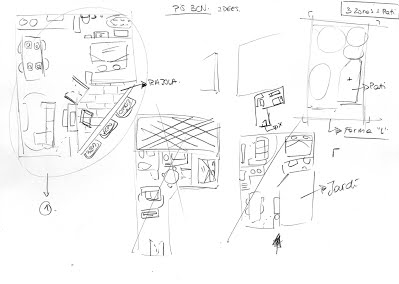 PIS BCN. IDEES.
3 Zones + Pati
RAJOLA.
Pati
Forma "L"
Jardí
1